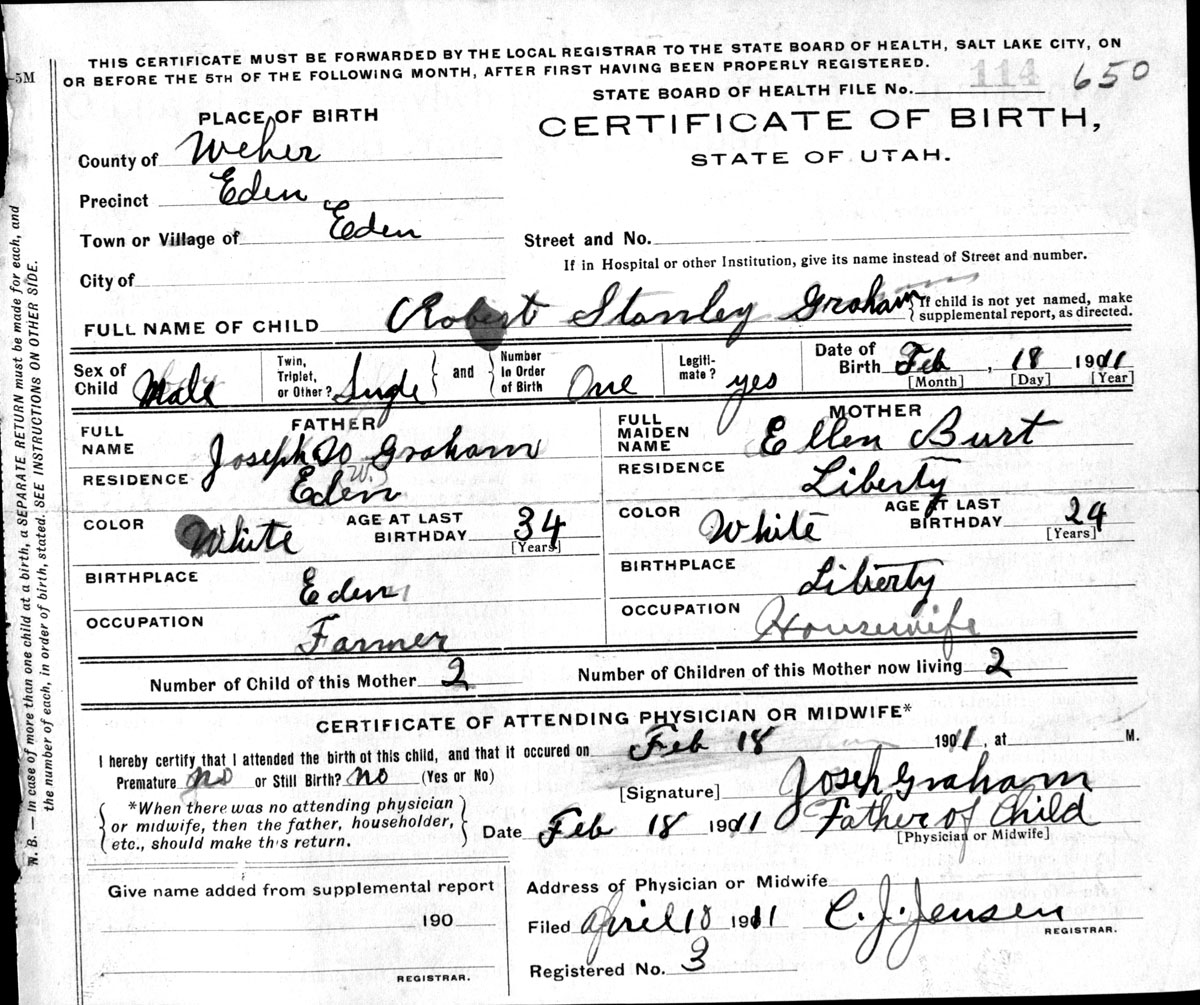 THIS CERTIFICATE MUST BE FORWARDED BY THE LOCAL REGISTRAR TO THE STATE BOARD OF HEALTH, SALT LAKE CITY, ON
OR BEFORE THE 5TH OF THE FOLLOWING MONTH, AFTER FIRST HAVING BEEN PROPERLY REGISTERED.
5M
STATE BOARD OF HEALTH FILE No. 114 650
PLACE OF BIRTH
CERTIFICATE OF BIRTH,
STATE OF UTAH.
County of Weber
Precinct Eden
Town or Village of Eden
Street and No.
If in Hospital or other Institution, give its name instead of Street and number.
City of
FULL NAME OF CHILD Robert Stanley Graham
If child is not yet named, make
supplemental report, as directed.
Sex of Child Male
Twin, Triplet, or Other? Single and
Number in Order of Birth One
Legiti- mate? yes
Date of Birth Feb, 18 1911
[Month] [Day] [Year]
FATHER
FULL NAME Joseph W Graham
(W.)
RESIDENCE Eden
COLOR White AGE AT LAST BIRTHDAY 34
[Years]
BIRTHPLACE Eden
OCCUPATION Farmer
MOTHER
FULL MAIDEN NAME Ellen Burt
RESIDENCE Liberty
COLOR White AGE AT LAST BIRTHDAY 24
[Years]
BIRTHPLACE Liberty
OCCUPATION Housewife
Number of Child of this Mother 2 Number of Children of this Mother now living 2
CERTIFICATE OF ATTENDING PHYSICIAN OR MIDWIFE*
I hereby certify that I attended the birth of this child, and that it occured on Feb 18 1911, at M.
Premature no or Still Birth? no (Yes or No)
[Signature] Joseph Graham
*When there was no attending physician
or midwife, then the father, householder,
etc., should make this return.
Date Feb 18 1911 Father of Child
[Physician or Midwife]
Give name added from supplemental report
190
REGISTRAR.
Address of Physician or Midwife
Filed April 18 1911 C. J. Jensen
REGISTRAR.
Registered No. 3
N. B. — In case of more than one child at a birth, a SEPARATE RETURN must be made for each, and
the number of each, in order of birth, stated. SEE INSTRUCTIONS ON OTHER SIDE.